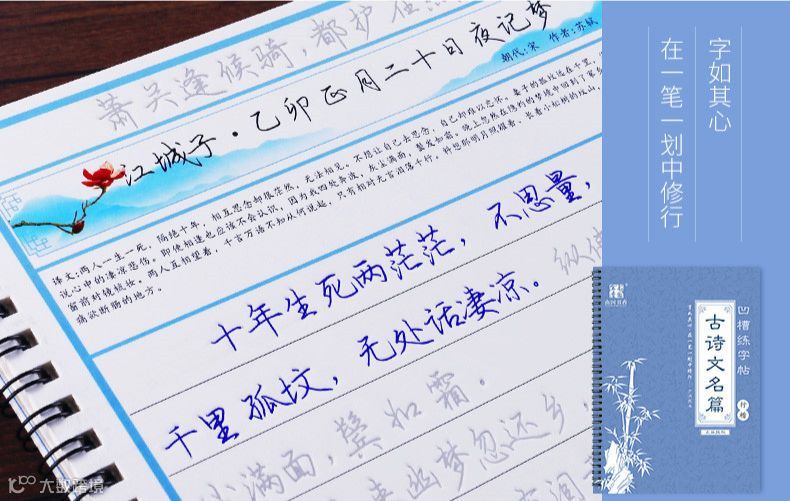 萧关逢候骑，都护在
江城子·乙卯正月二十日夜记梦
朝代：宋 作者：苏轼
译文：两人一生一死，隔绝十年，相互思念却很茫然，无法相见。不想让自己去思念，自己却难以忘怀。妻子的孤坟远在千里，
说心中的凄凉悲伤。即使相逢也应该不会认识，因为我四处奔波，灰尘满面，鬓发如霜。晚上忽然在隐约的梦境中回到了家乡
窗前对镜梳妆。两人互相望着，千言万语不知从何说起，只有相对无言泪落千行。料想那明月照耀着、长着小松树的坟山，
痛欲断肠的地方。
十年生死两茫茫，不思量，
千里孤坟，无处话凄凉。纵使
尘满面，鬓如霜。
来幽梦忽还乡，
字如其心
在一笔一划中修行
凹槽练字帖
古诗文名篇
行楷
大数跨境